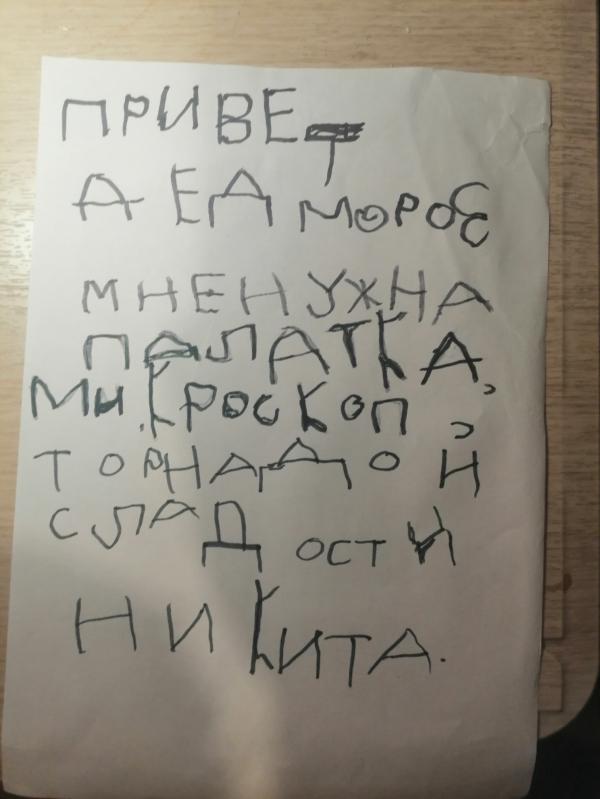 ПРИВЕТ
ДЕД МОРОЗ
МНЕ НУЖНА
ПАЛАТКА,
МИКРОСКОП,
ТОРНАДО И
СЛАДОСТИ
НИКИТА.